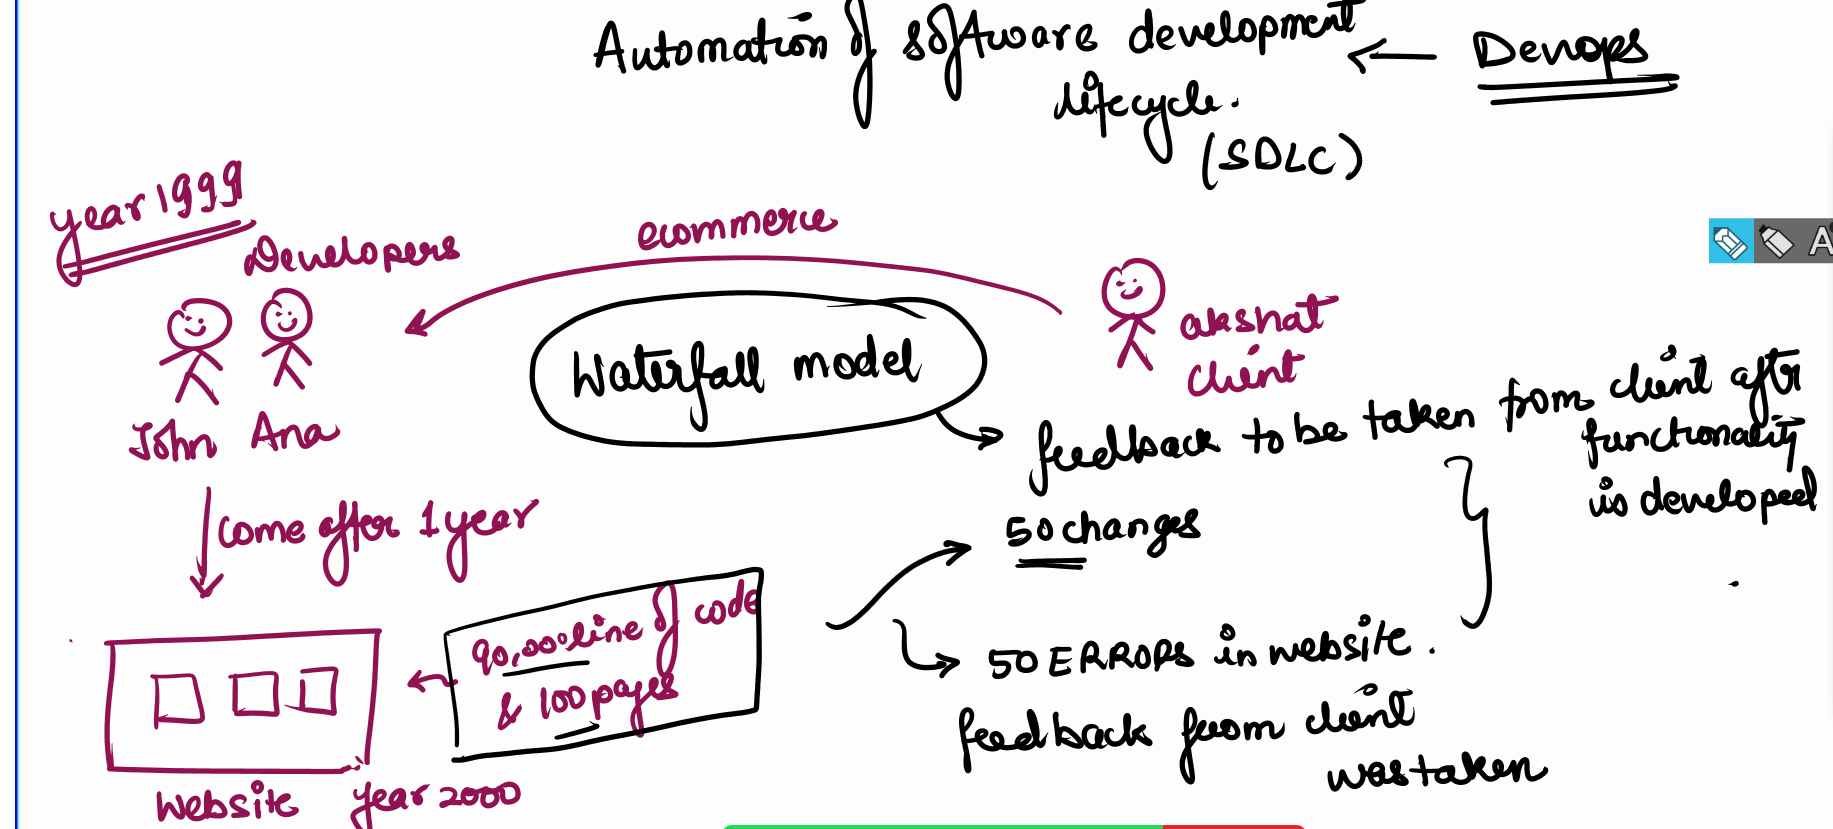 Automation of software development
lifecycle.
(SDLC)
Devops
year 1999
Developers
ecommerce
akshat
client
John Ana
Waterfall model
feedback to be taken from client after
functionality
is developed
come after 1 year
50 changes
90,000 line of code
& 100 pages
50 ERRORS in website.
feedback from client
was taken
Website year 2000
A